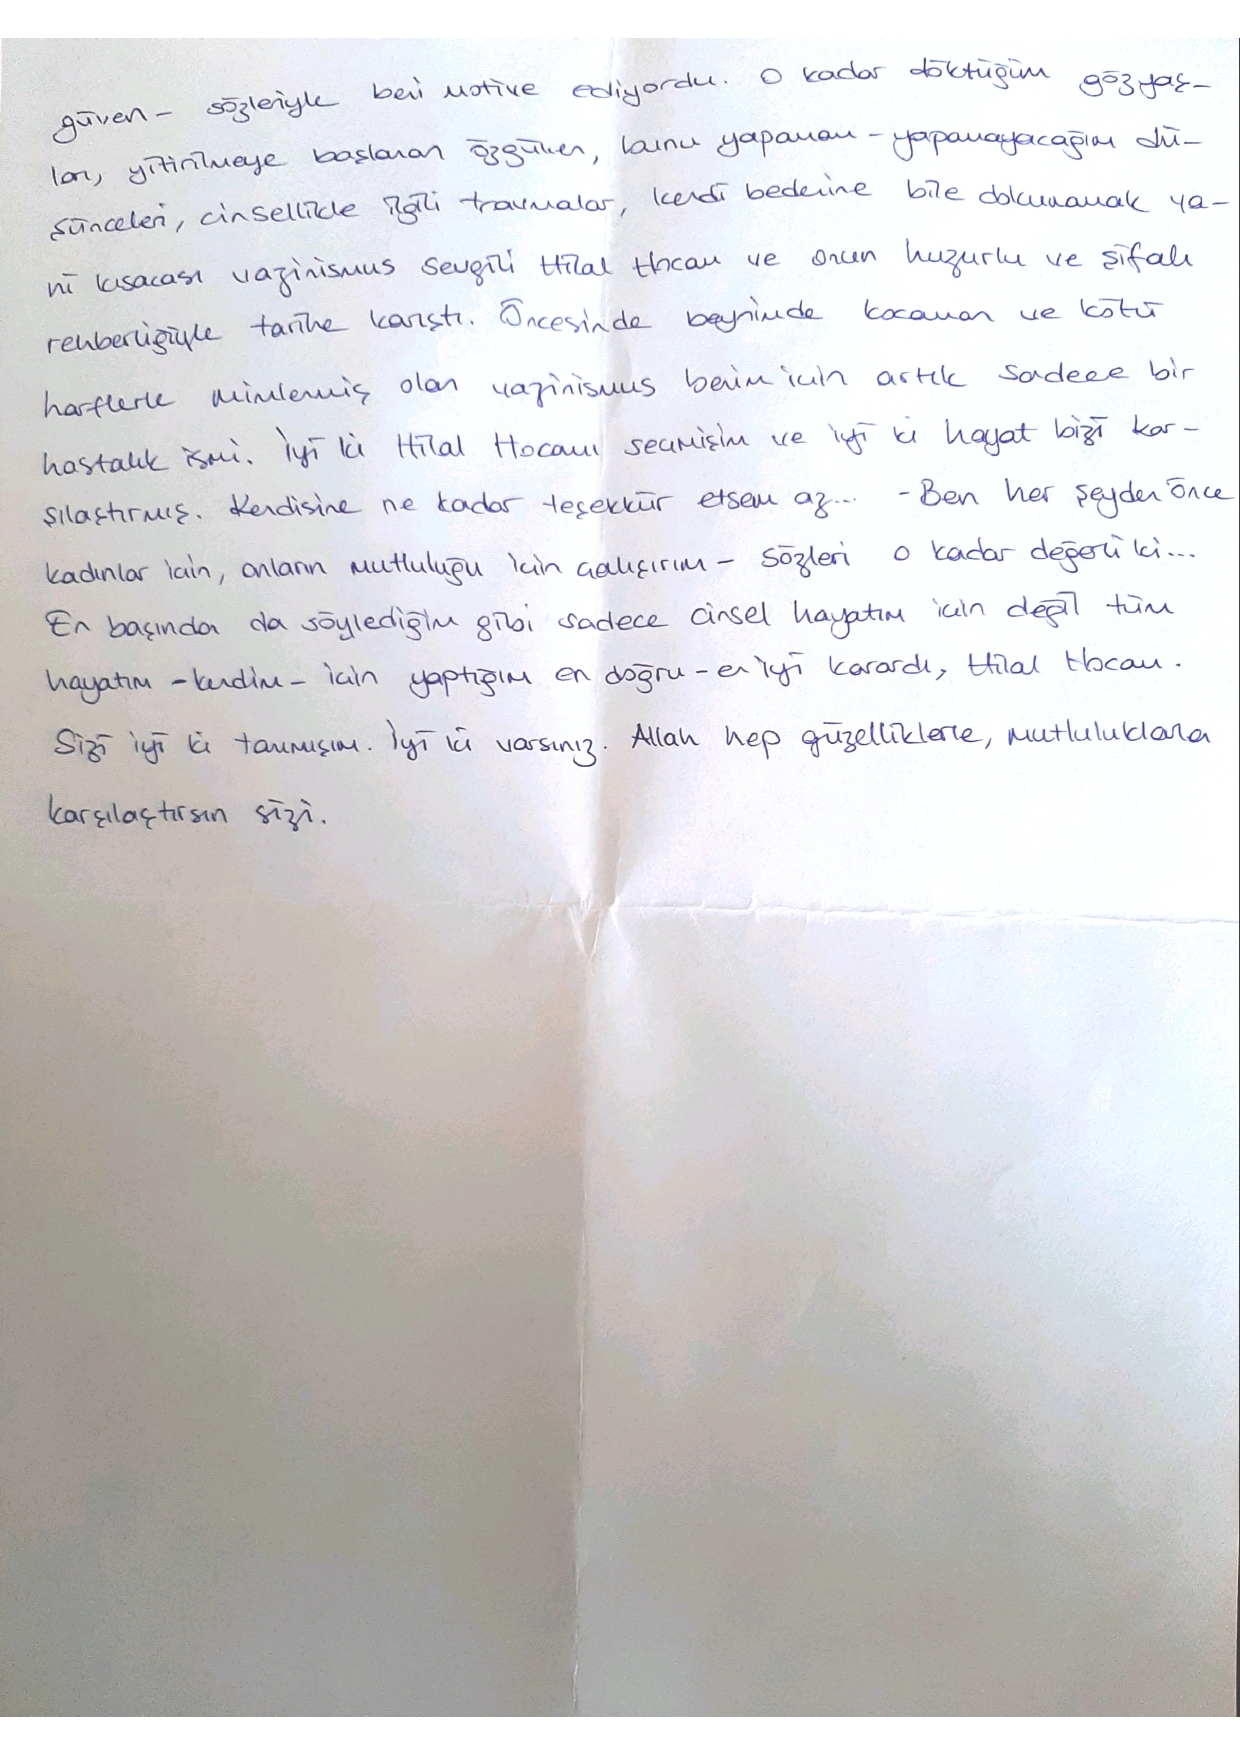 güven - sözleriyle beni motive ediyordu. O kadar döktüğüm gözyaş-
ları, yitirilmeye başlanan özgüven, bunu yapamam - yapamayacağım dü-
şünceleri, cinsellikle ilgili travmalar, kendi bedenine bile dokunamamak ya-
ni kısacası vajinismus sevgili Hilal Hocam ve onun huzurlu ve şifalı
rehberliğiyle tarihe karıştı. Öncesinde beynimde kocaman ve kötü
harflerle mimlenmiş olan vajinismus benim için artık sadece bir
hastalık ismi. İyi ki Hilal Hocamı seçmişim ve iyi ki hayat bizi kar-
şılaştırmış. Kendisine ne kadar teşekkür etsem az... - Ben her şeyden önce
kadınlar için, onların mutluluğu için çalışırım - sözleri o kadar değerli ki...
En başında da söylediğim gibi sadece cinsel hayatım için değil tüm
hayatım - kendim - için yaptığım en doğru - en iyi karardı, Hilal Hocam.
Sizi iyi ki tanımışım. İyi ki varsınız. Allah hep güzelliklerle, mutluluklarla
karşılaştırsın sizi.